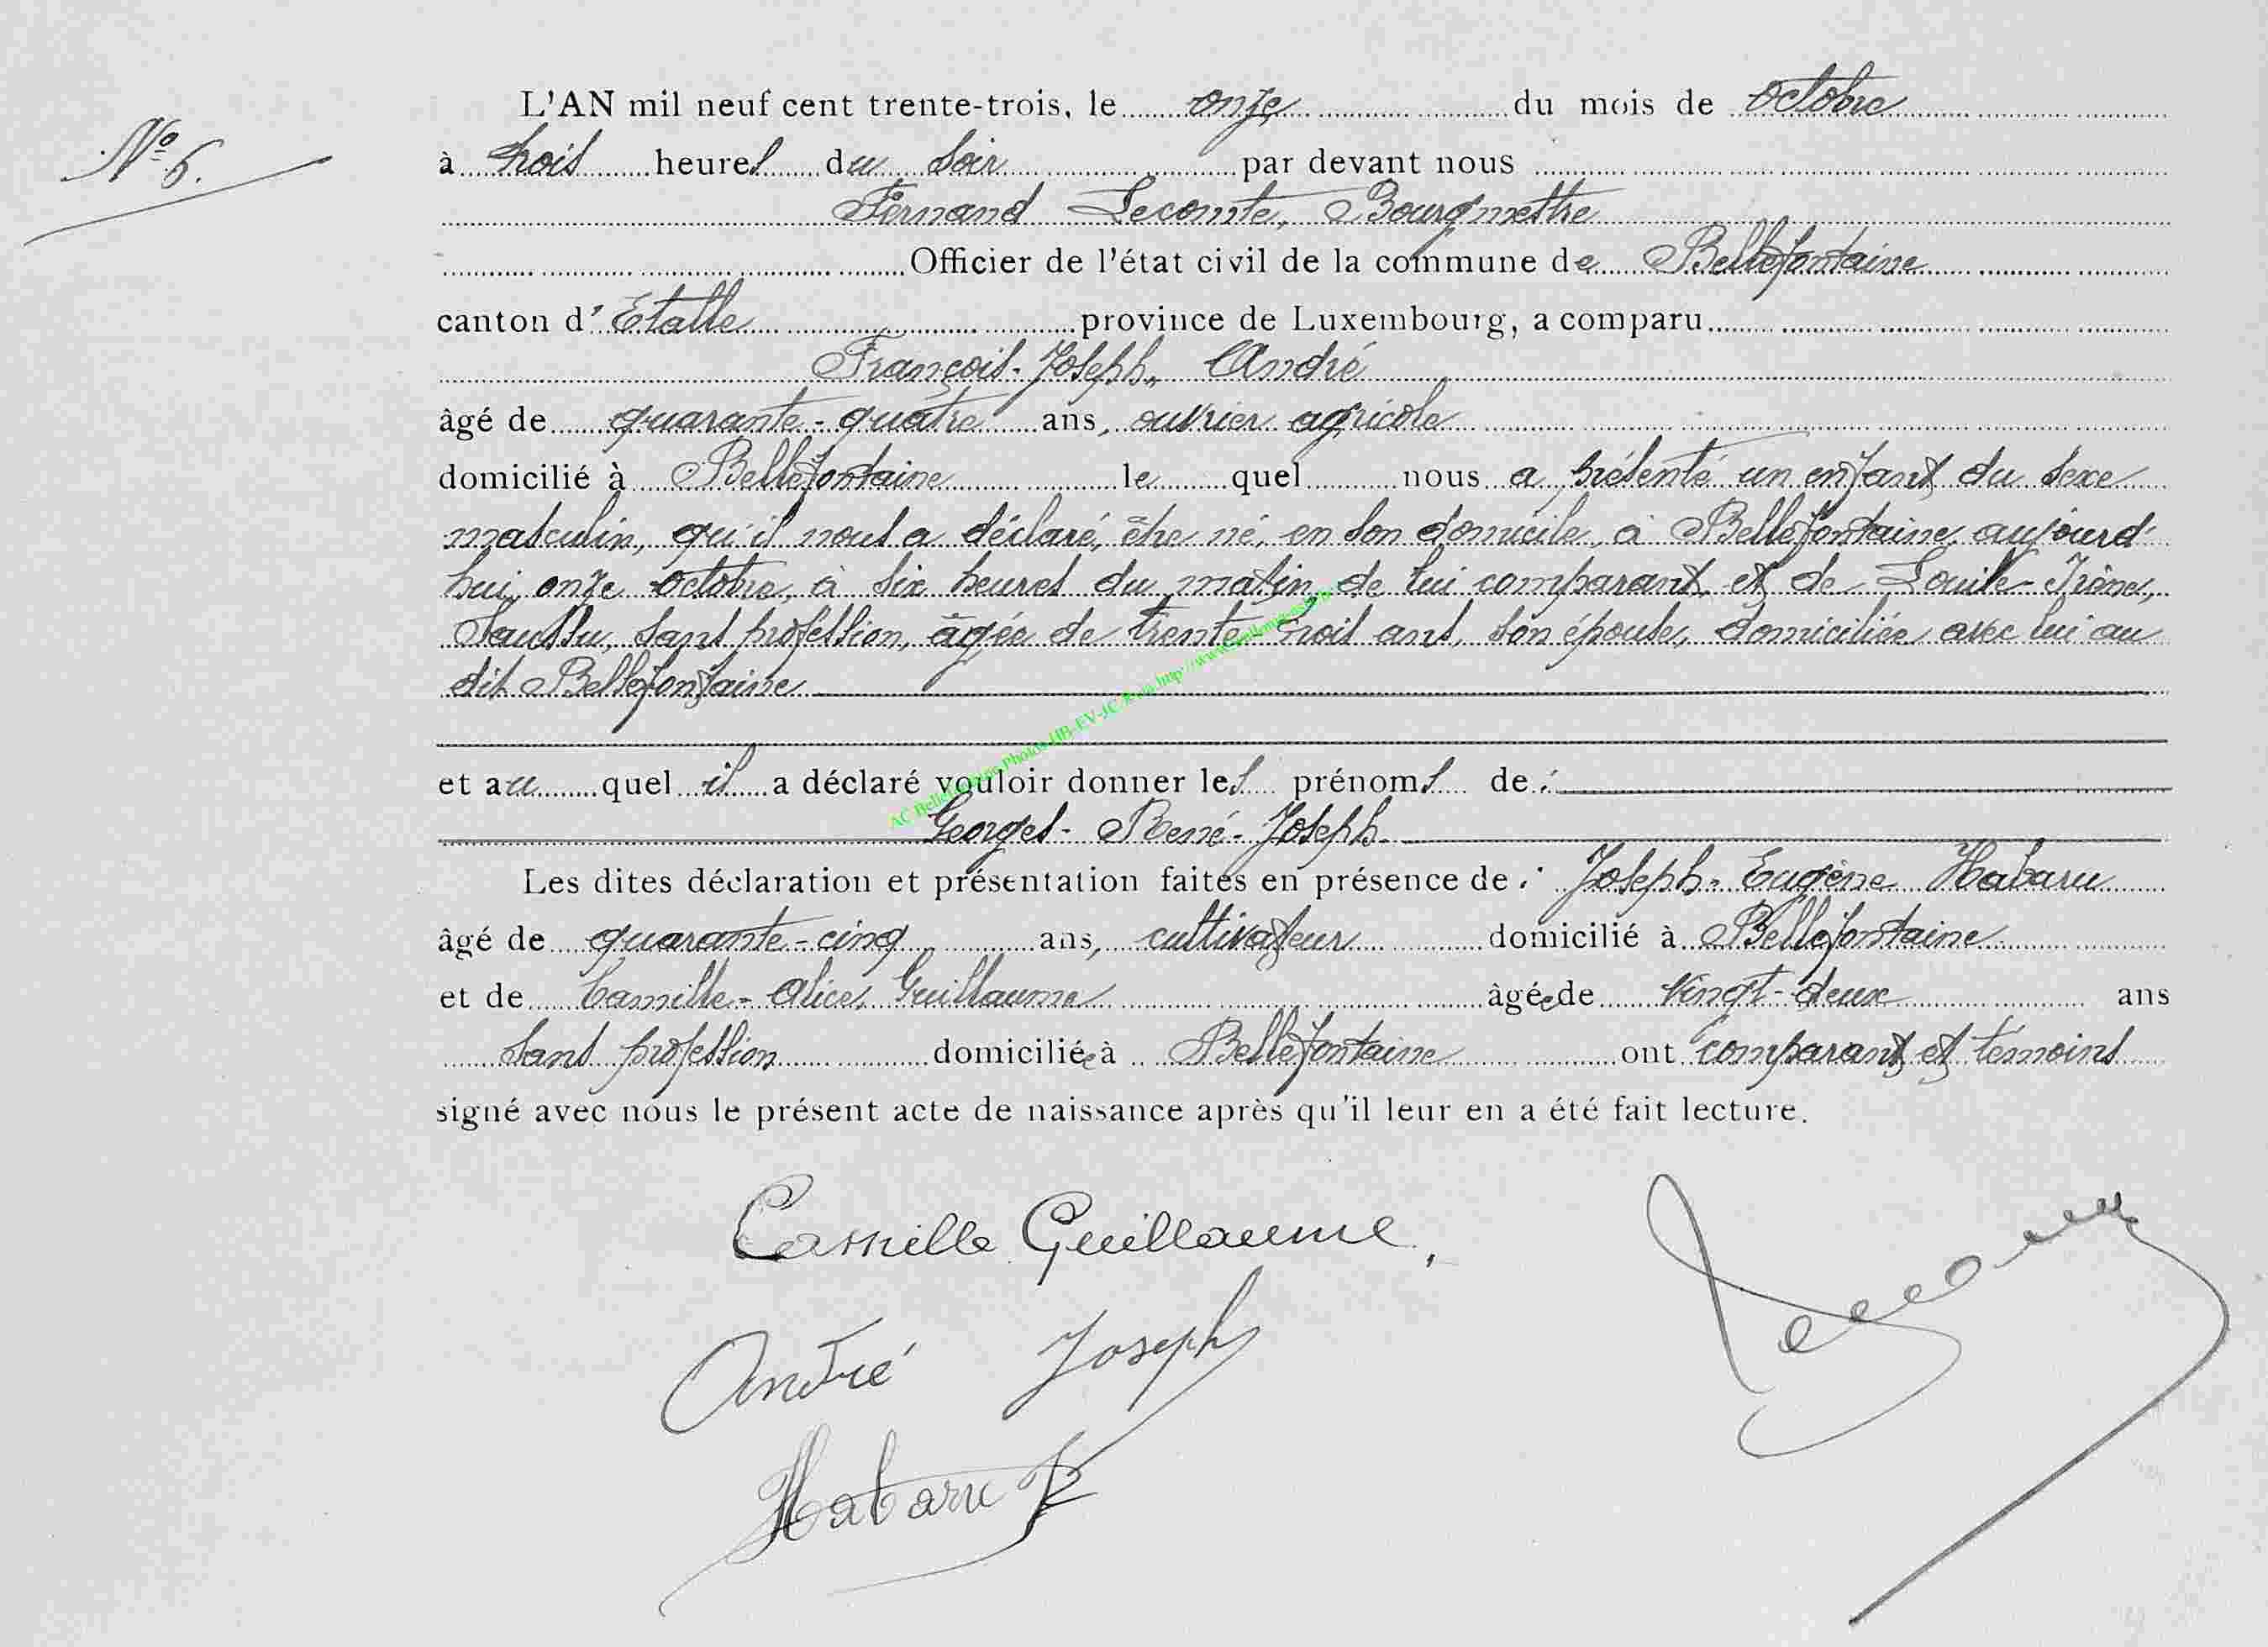 L'AN mil neuf cent trente-trois, le onze du mois de Octobre
N° 6.
à trois heures du soir par devant nous
Fernand Lecomte, Bourgmestre
Officier de l'état civil de la commune de Bellefontaine
canton d' Etalle province de Luxembourg, a comparu
François-Joseph, André
âgé de quarante-quatre ans, ouvrier agricole
domicilié à Bellefontaine le quel nous a présenté un enfant du sexe
masculin, qu'il nous a déclaré, être né, en son domicile, à Bellefontaine, aujourd'
hui, onze Octobre, à six heures du matin, de lui comparant, et de Louise-Irène,
Saussu, sans profession, âgée de trente trois ans, son épouse, domiciliée avec lui au
dit Bellefontaine
et au quel il a déclaré vouloir donner les prénoms de :
Georges-René-Joseph
Les dites déclaration et présentation faites en présence de : Joseph-Eugène Habaru
âgé de quarante-cinq ans, cultivateur domicilié à Bellefontaine
et de Camille-Alice, Guillaume âgée de vingt-deux ans
sans profession domiciliée à Bellefontaine ont comparant et témoins
signé avec nous le présent acte de naissance après qu'il leur en a été fait lecture.
Camille Guillaume.
André Joseph
Habaru J